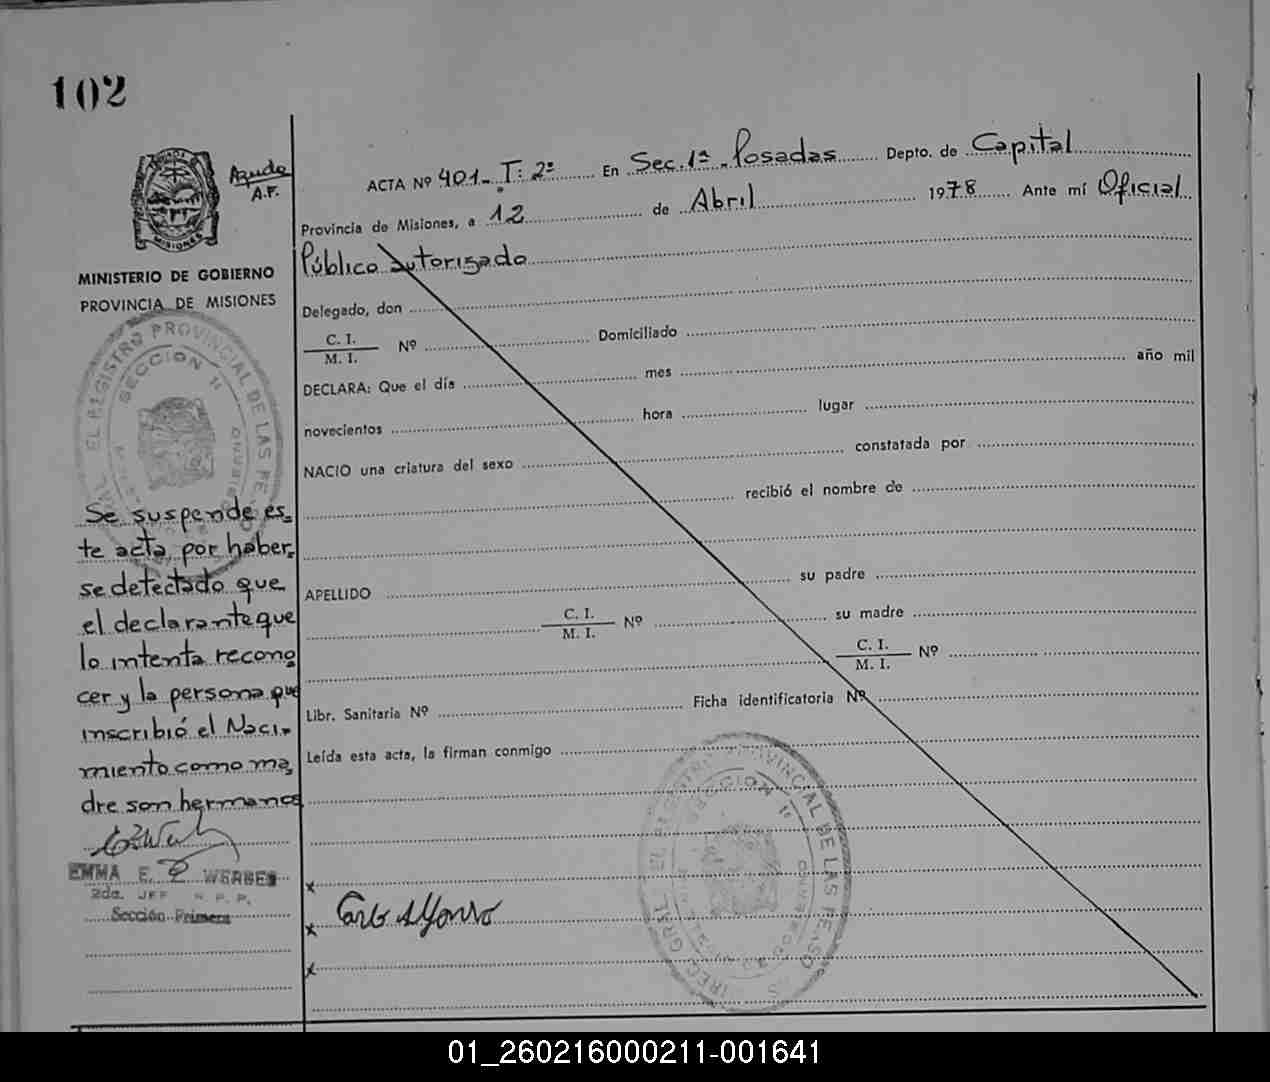 102
Ayuda
A.F.
MISIONES
MINISTERIO DE GOBIERNO
PROVINCIA DE MISIONES
ACTA Nº 401- T: 2º En Sec. 1ª - Posadas Depto. de Capital
Provincia de Misiones, a 12 de Abril 1978 Ante mí Oficial
Público autorizado
Delegado, don
C. I.
M. I. Nº Domiciliado
DECLARA: Que el día mes año mil
novecientos hora lugar
NACIO una criatura del sexo constatada por
recibió el nombre de
APELLIDO su padre
C. I.
M. I. Nº su madre
C. I.
M. I. Nº
Libr. Sanitaria Nº Ficha identificatoria Nº
Leída esta acta, la firman conmigo
EL REGISTRO PROVINCIAL DE LAS PE
SECCION 1ª
Se suspende es-
te acta, por haber-
se detectado que
el declarante que
lo intenta recono
cer y la persona que
inscribió el Naci-
miento como ma,
dre son hermanos
EMMA E. WERBES
2da. JEF R. P. P.
Sección Primera
Carlo Alfonso
EL REGISTRO PROVINCIAL DE LAS PE SO S
SECCION 1ª
01_260216000211-001641